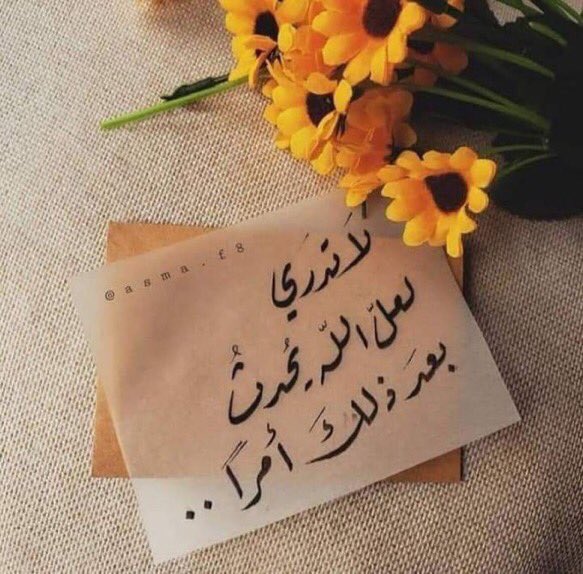 @asma.f8
لَا تدرَي
لعلّ اللّه يُحدثُ
بعدَ ذلكَ أمراً ..